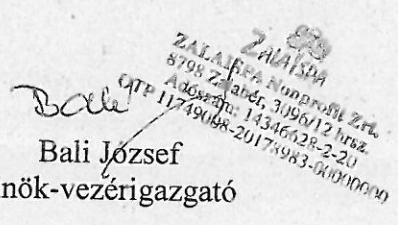 ZALAISPA
ZALAISPA Nonprofit Zrt.
8798 Zalabér, 3096/12 hrsz.
Adószám: 14346628-2-20
OTP 11749098-20173983-00000000
Bali
Bali József
nök-vezérigazgató